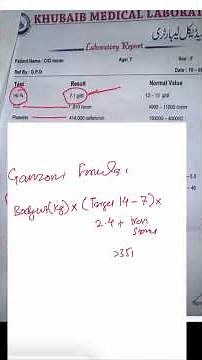 KHUBAIB MEDICAL LABORAT
میڈیکل لیبارٹری
Laboratory Report
Patient Name : C/O Imran Age: 7 Sex : F
Ref By : O.P.D Date : 10
Test Result Normal Value
Hb% 7.1 g/dl 12 – 15 g/dl
4000 – 11000 /cmm
Platelets 414,000 cells/cmm 150000 – 400000
Ganzoni Fromula,
Body wt (kg) x (Target 14 – 7) x
2.4 + Iron
Stores
>35